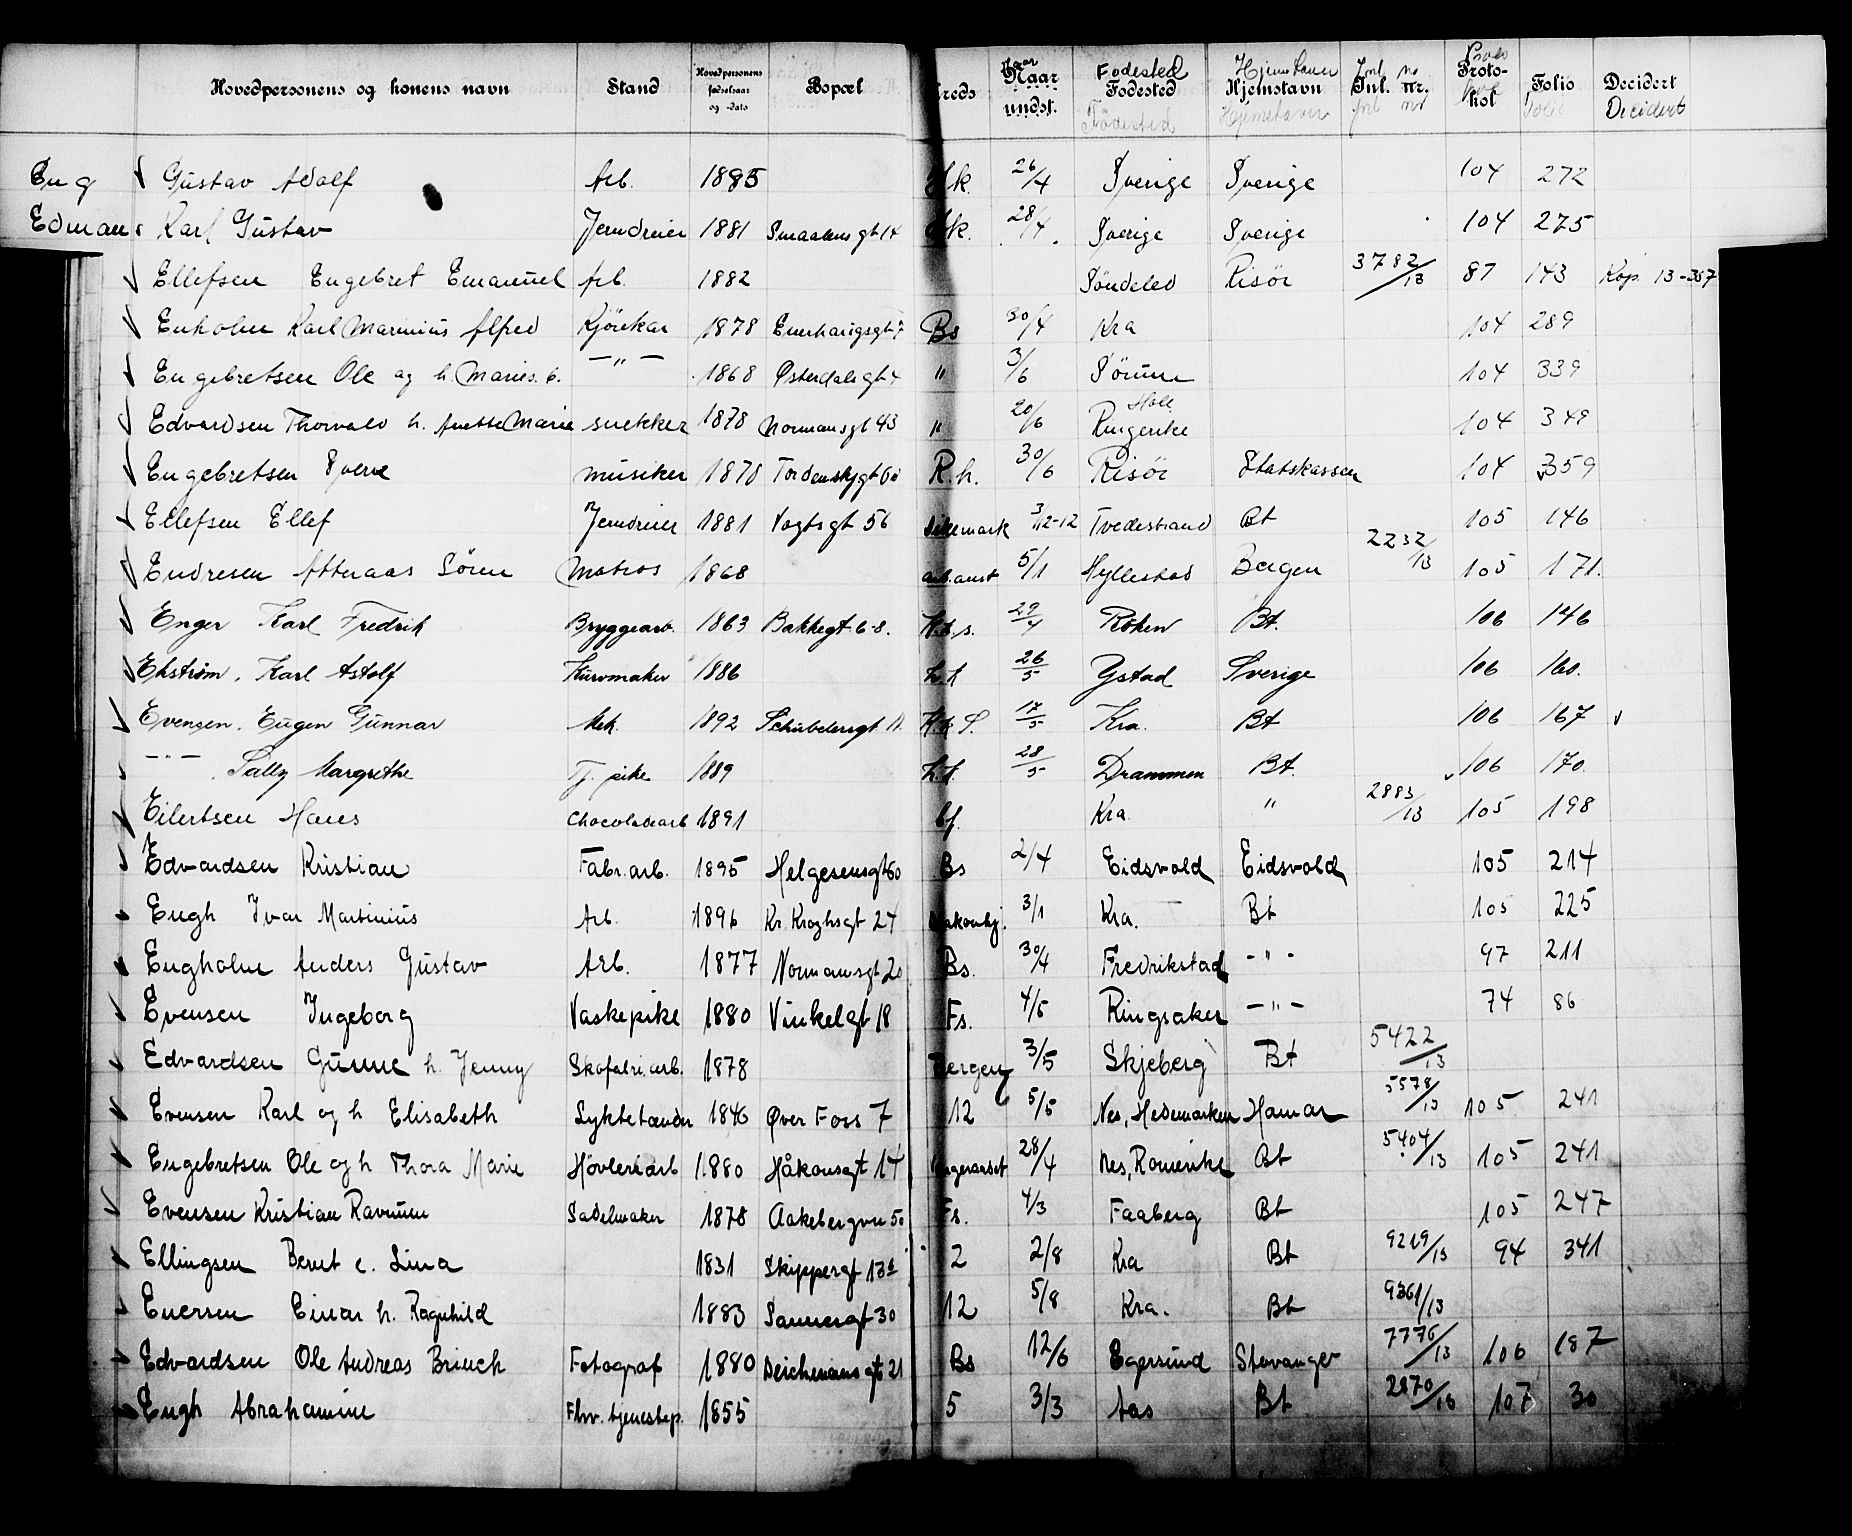 Hovedpersonens og konens navn Stand Hovedpersonens fødselsaar og -dato Bopæl Kreds Naar undst. Fødested Hjemstavn Jnl. nr. Protokol Folio Decidert
Eng Gustav Adolf Arb. 1885 26/4 Sverige Sverige 104 272
Edman Karl Gustav Jerndreier 1881 Smaalensgt 14 28/4 Sverige Sverige 104 275
Ellefsen Engebret Emanuel Arb. 1882 Söndeled Risör 3782/13 87 143 Kop. 13-357
Enholm Karl Marinius Alfred Kjörekar 1878 Enerhaugsgt 7 Bs 30/4 Kra 104 289
Engebretsen Ole og h. Maries. b. —"— 1868 Østerdalsgt 4 " 3/6 Sörum 104 339
Edvardsen Thorvald h. Anette Marie snekker 1878 Normansgt 43 " 20/6 Hole Ringerike 104 349
Engebretsen Sverre musiker 1878 Tordenskjgt R.h. 30/6 Risör Statskassen 104 359
Ellefsen Ellef Jerndreier 1881 Vogtsgt 56 Dikemark 3/12-12 Tvedestrand Bt 105 146
Endresen Atteraas Sören Matros 1868 5/1 Hyllestad Bergen 2232/13 105 171.
Enger Karl Fredrik Bryggearb. 1863 Bakkegt. 6-8. 29/4 Röken Bt. 106 146
Ekström, Karl Astolf Kurvmaker 1886 26/5 Ystad Sverige 106 160.
Evensen, Eugen Gunnar Mek. 1892 Schübelersgt 11 17/5 Kra. Bt 106 167
—"— , Sally Margrethe Tj. pike 1889 28/5 Drammen Bt. 106 170.
Eilertsen Hans Chocoladearb 1891 Kra. " 2883/13 105 198
Edvardsen Kristian Fabr.arb. 1895 Helgesensgt 60 Bs 2/4 Eidsvold Eidsvold 105 214
Engh Ivar Martinius Arb. 1896 Kr. Kroghsgt 24 3/1 Kra. Bt 105 225
Engholm Anders Gustav Arb. 1877 Normansgt 20 Bs. 30/4 Fredrikstad -"- 97 211
Evensen Ingeborg Vaskepike 1880 Vinkelgt 18 Fs. 4/5 Ringsaker —"— 74 86
Edvardsen Gunne h. Jenny Skofabr.arb. 1878 Bergen 3/5 Skjeberg Bt 5422/13
Evensen Karl og h Elisabeth Lyktetænder 1846 Øvre Foss 7 12 5/5 Nes, Hedemarken Hamar 5578/13 105 241
Engebretsen Ole og h Thora Marie Hövleriarb 1880 Håkonsgt 14 28/4 Nes, Romerike Bt 5404/13 105 241
Evensen Kristian Ravnum Sadelmaker 1878 Aakebergvn 50 Fs. 4/3 Faaberg Bt 105 247
Ellingsen Bernt e. Lina 1831 Skippergt 13 2 2/8 Kra Bt 9219/13 94 341
Enersen Einar h. Ragnhild 1883 Sannergt 30 12 5/8 Kra. Bt 9361/13
Edvardsen Ole Andreas Brinch Fotograf 1880 Deichmansgt 21 Bs 12/6 Egersund Stavanger 7776/13 106 187
Engh Abrahamine Fhv. tjenestep. 1855 5 3/3 Aas Bt 2870/13 107 30